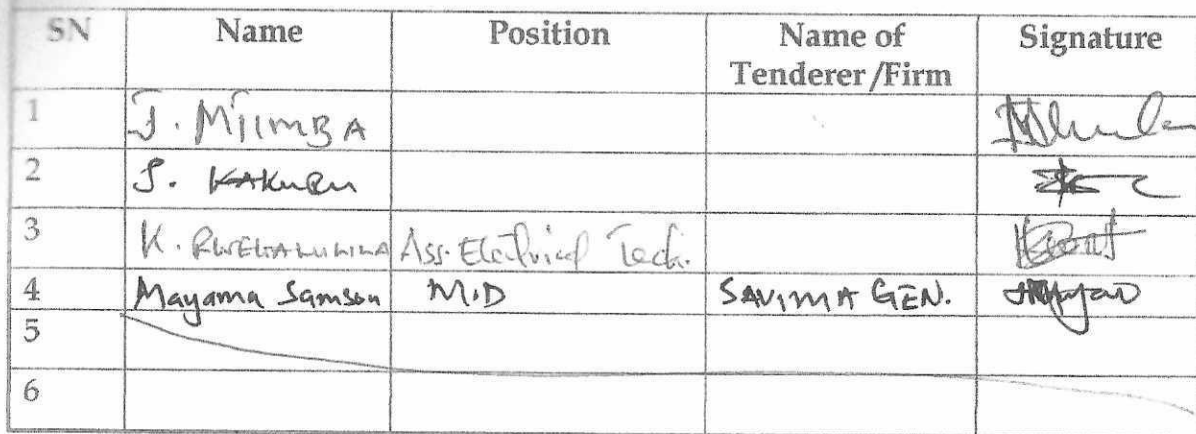 SN Name Position Name of Tenderer/Firm Signature
1 J. MJIMBA
2 J. KAKURU
3 K. Ass. Electrical Tech.
4 Mayama Samson M.D SAVIMA GEN.
5
6